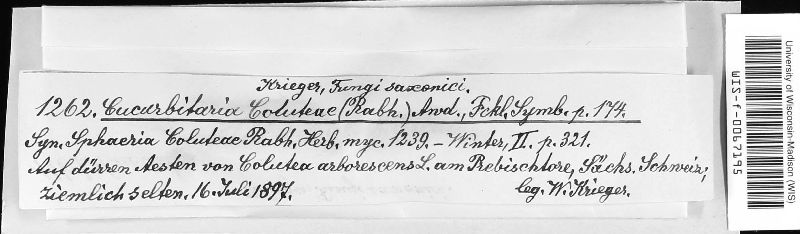 Krieger, Fungi saxonici.
1262. Cucurbitaria Coluteae (Rabh.) Awd., Fckl. Symb. p. 174.
Syn. Sphaeria Coluteae Rabh. Herb. myc. 1239. – Winter, II. p. 321.
Auf dürren Aesten von Colutea arborescens L. am Prebischtore, Sächs. Schweiz,
ziemlich selten. 16. Juli 1897.
leg. W. Krieger.
University of Wisconsin-Madison (WIS)
WIS-f-0067195